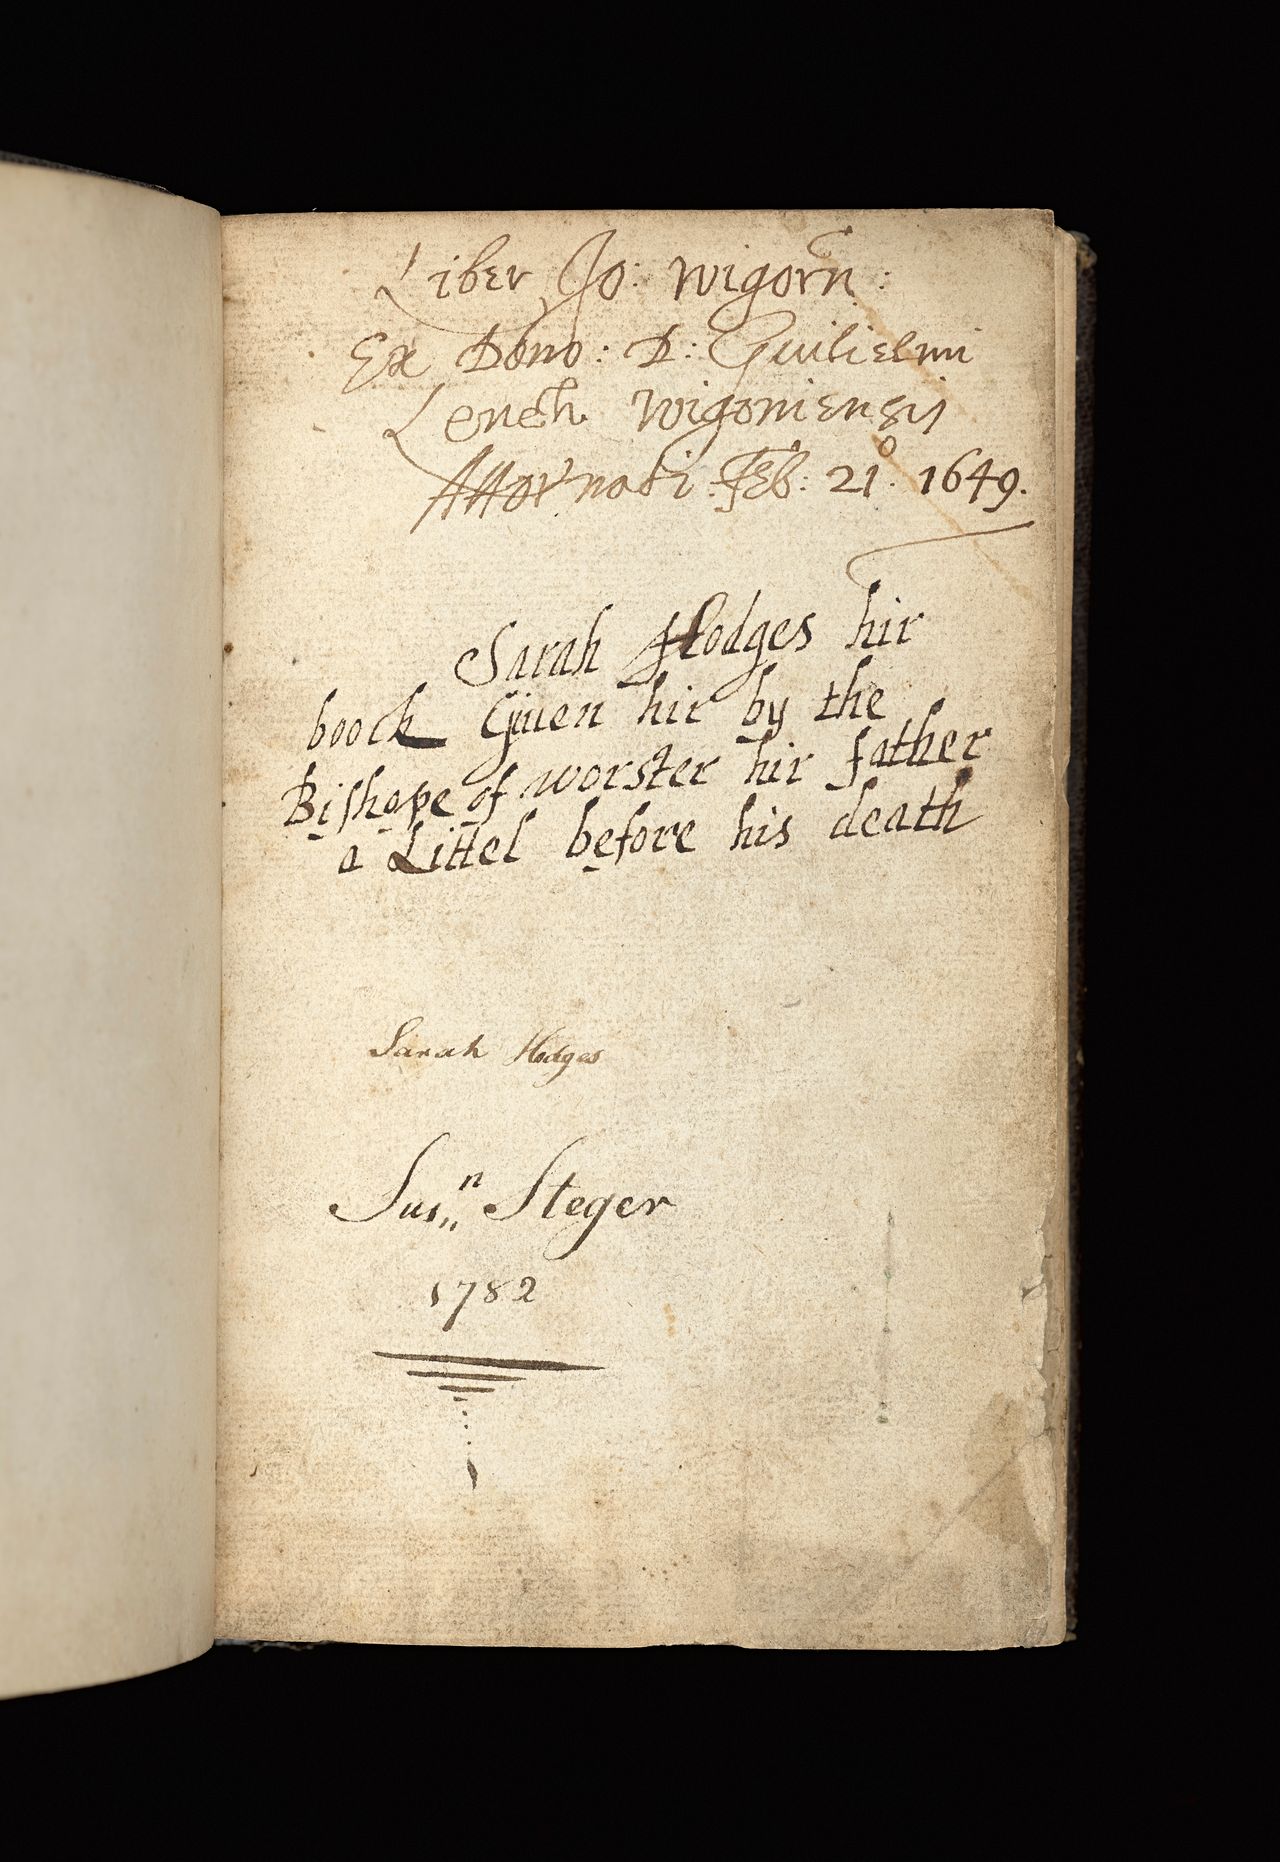 Liber Jo: Wigorn:
Ex Dono: D: Guilielmi
Lench Wigorniensis
Attornati: Feb: 21º. 1649.
Sarah Hodges hir
boock Giuen hir by the
Bishope of worster hir father
a Littel before his death
Sarah Hodges
Susn Steger
1782